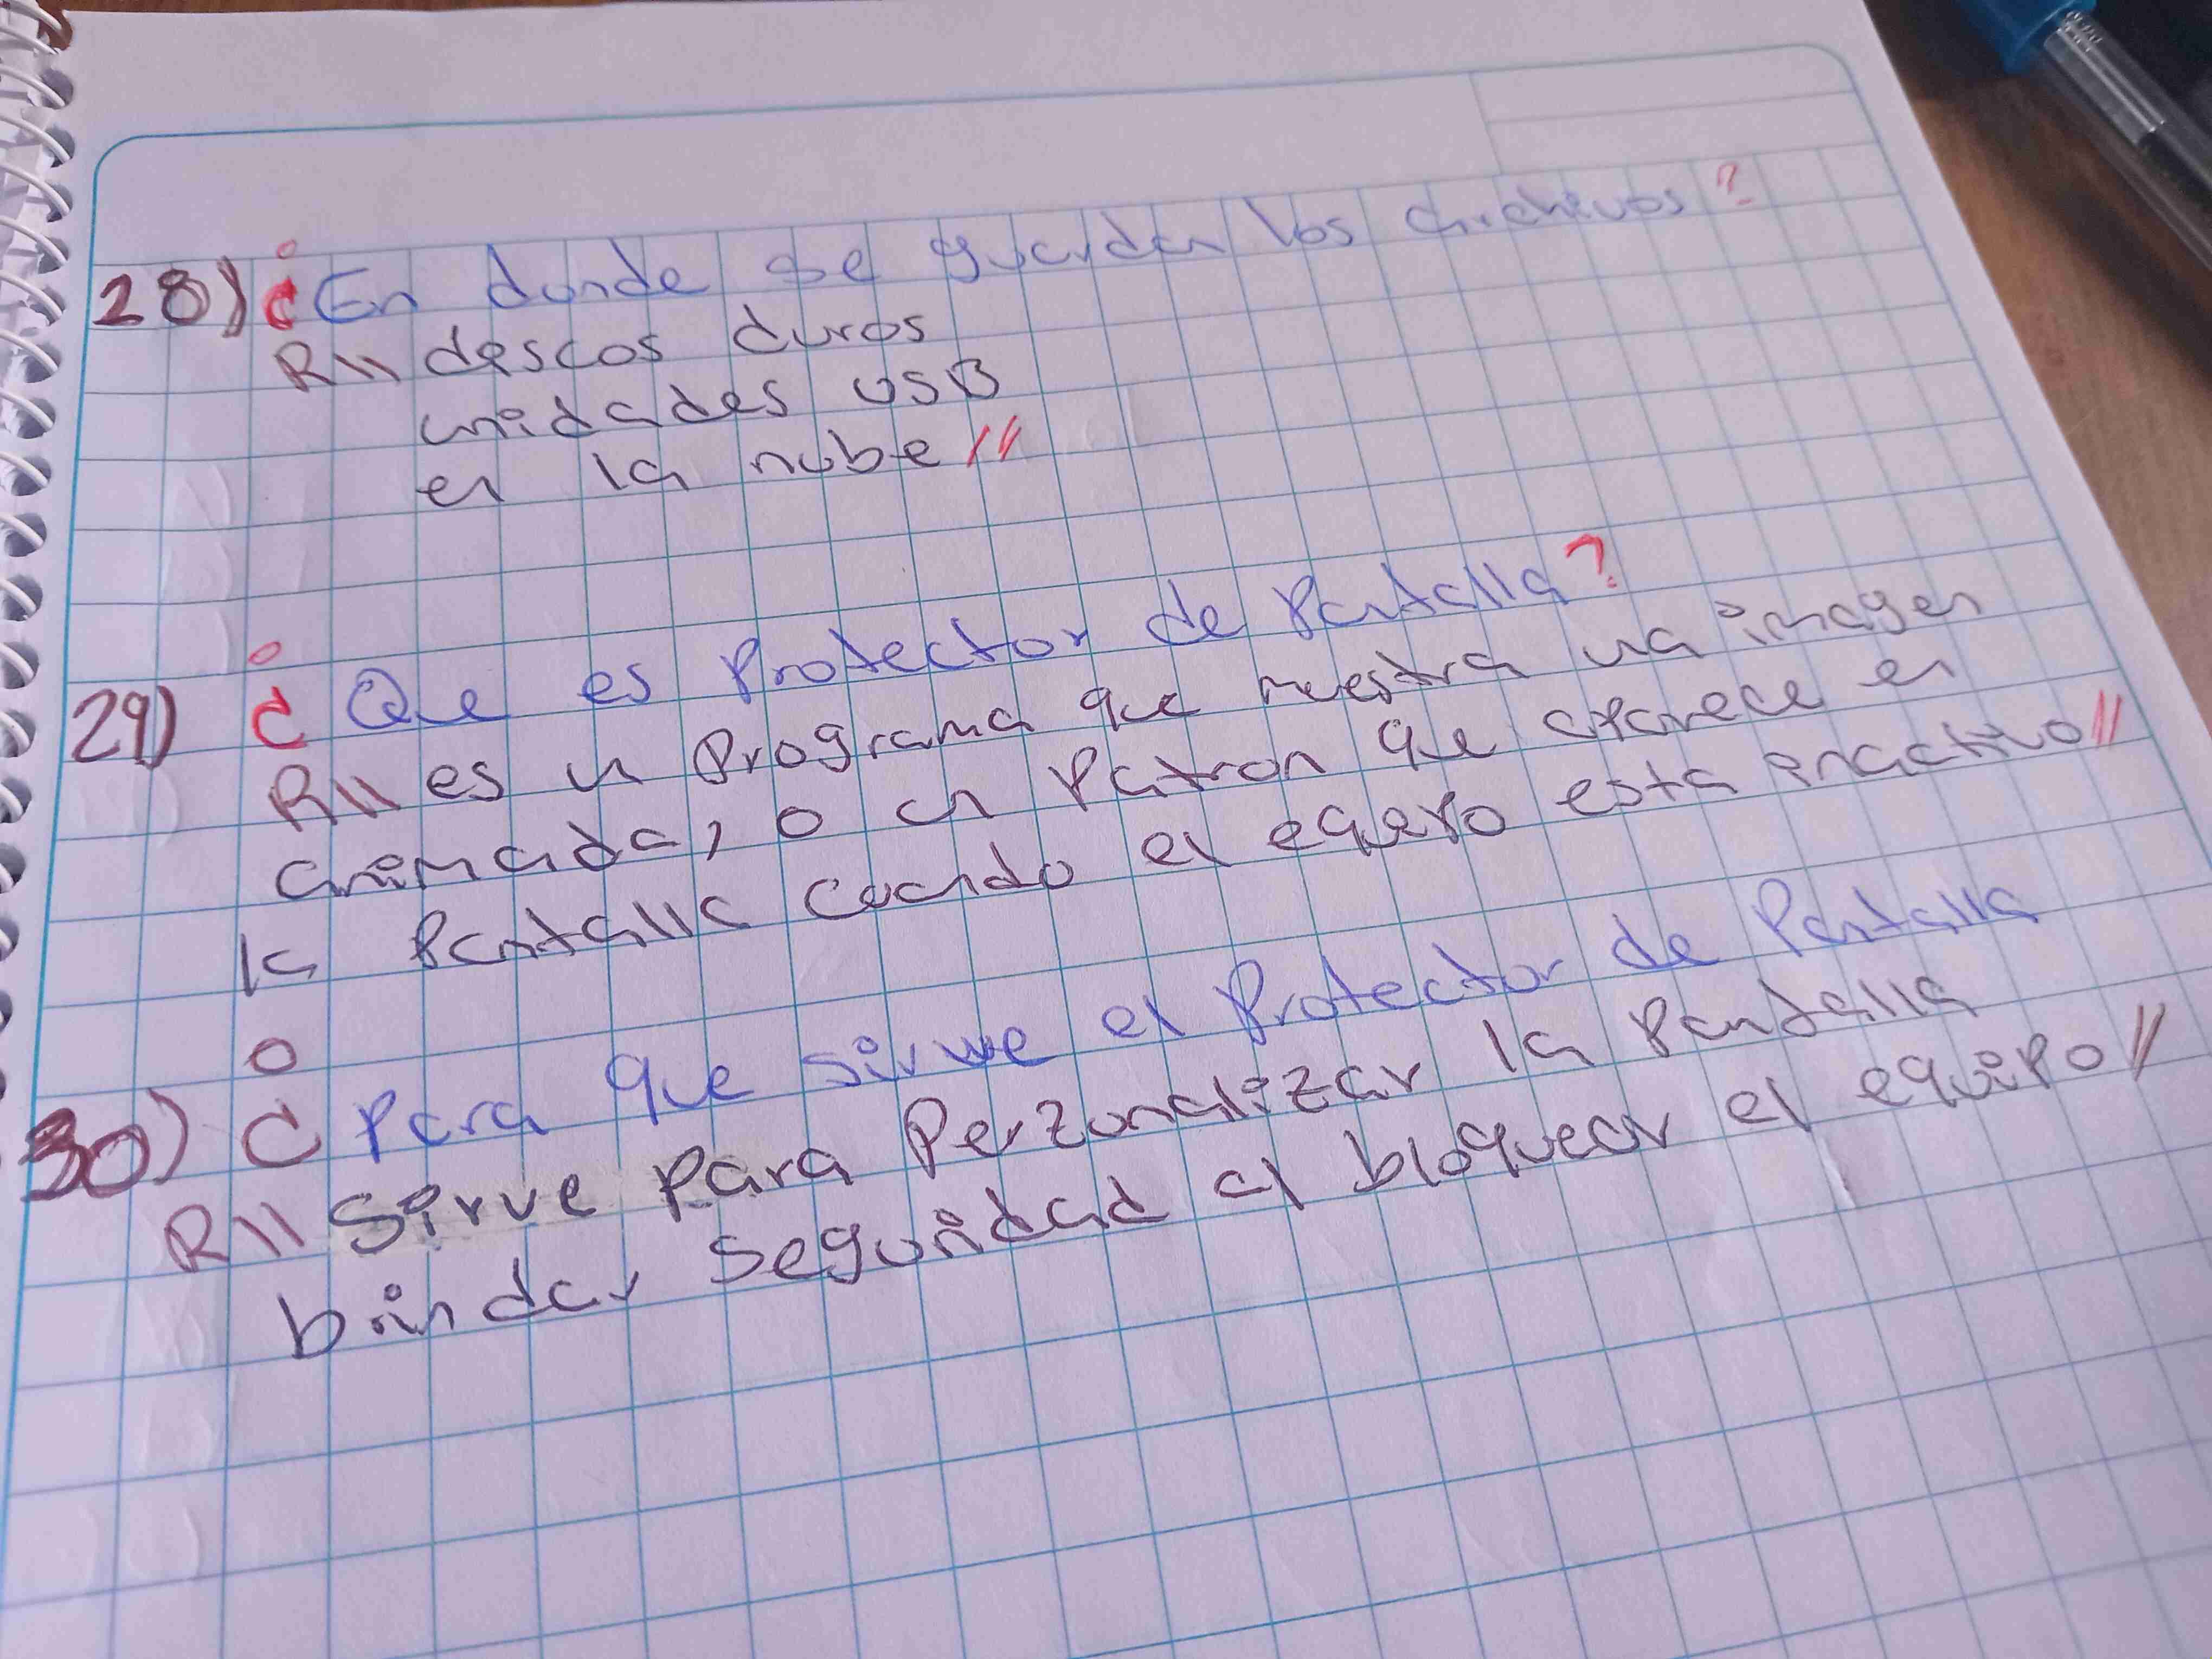 28) ¿En donde se guardan los archivos?
R// descos duros
unidades USB
en la nube //
29) ¿Que es Protector de Pantalla?
R// es un Programa que muestra una imagen
animada, o un Patron que aparece en
la Pantalla cuando el equepo esta enactivo //
30) ¿Para que sirwe el Protector de Pantalla
R// Sirve Para Perzonalizar la Pantalla
brindar seguridad al bloquear el equipo //